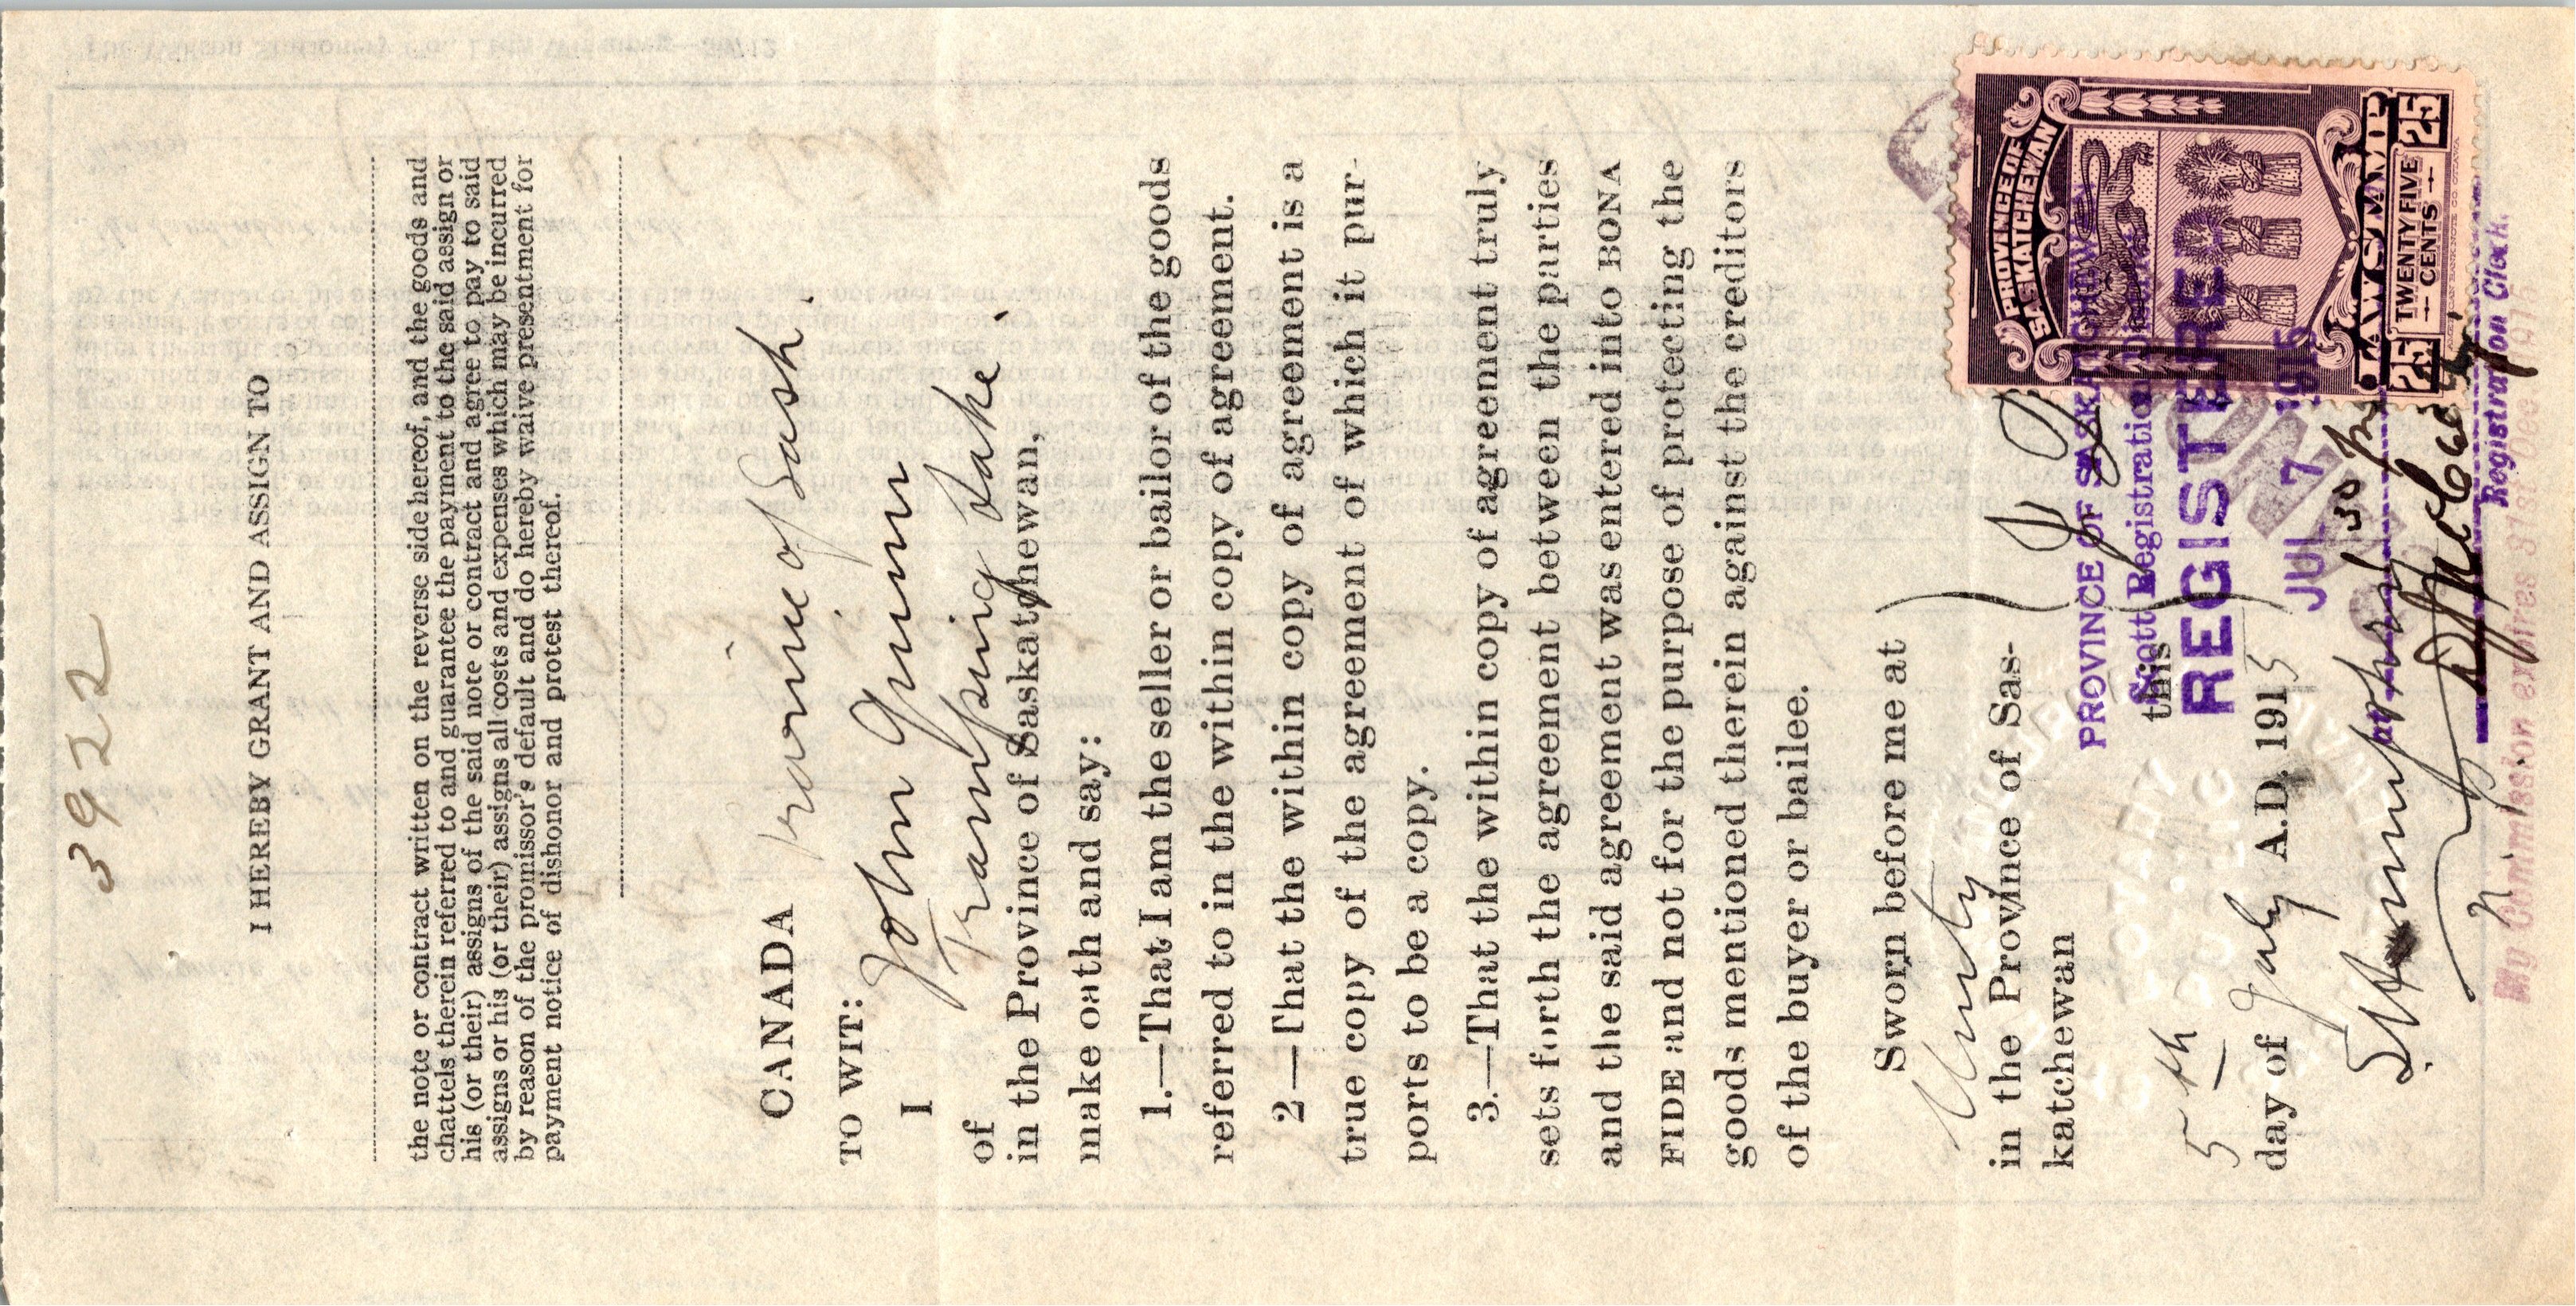 3922
I HEREBY GRANT AND ASSIGN TO
the note or contract written on the reverse side hereof, and the goods and
chattels therein referred to and guarantee the payment to the said assign or
his (or their) assigns of the said note or contract and agree to pay to said
assigns or his (or their) assigns all costs and expenses which may be incurred
by reason of the promissor's default and do hereby waive presentment for
payment notice of dishonor and protest thereof.
CANADA Province of Sask.
TO WIT:
I John Grimm
of Tramping Lake
in the Province of Saskatchewan,
make oath and say:
1.—That I am the seller or bailor of the goods
referred to in the within copy of agreement.
2—That the within copy of agreement is a
true copy of the agreement of which it pur-
ports to be a copy.
3.—That the within copy of agreement truly
sets forth the agreement between the parties
and the said agreement was entered into BONA
FIDE and not for the purpose of protecting the
goods mentioned therein against the creditors
of the buyer or bailee.
Sworn before me at
Unity
in the Province of Sas-
katchewan
this
5th
day of July A.D. 1915
PROVINCE OF SASKATCHEWAN
Scott Registration District
REGISTERED
JUL 7 1915
at
Registration Clerk
My Commission expires 31st Dec 191
PROVINCE OF
SASKATCHEWAN
LAW STAMP
25 TWENTY FIVE 25
CENTS